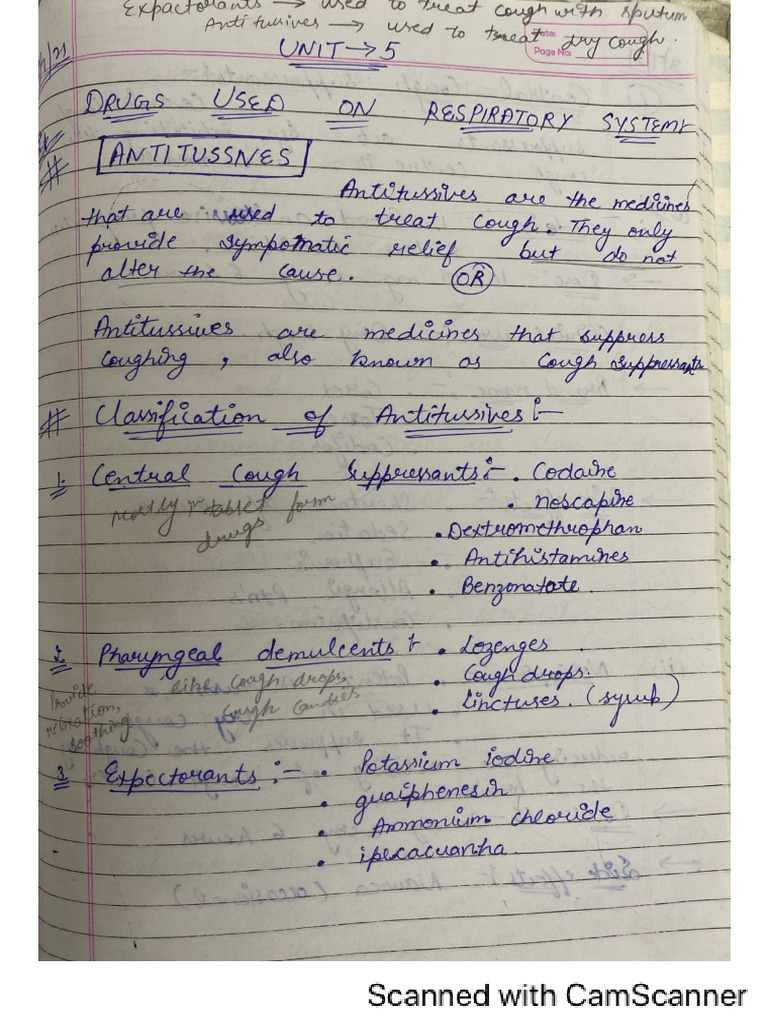 Expactorants → used to treat cough with sputum
Antitussives → used to treat dry cough.
Date:
Page No:
UNIT → 5
DRUGS USED ON RESPIRATORY SYSTEM
# ANTITUSSIVES
Antitussives are the medicines
that are used to treat cough. They only
provide sympomatic relief but do not
alter the cause. OR
Antitussives are medicines that suppress
coughing, also known as Cough Suppressants
# Classification of Antitussives :-
1. Central Cough Suppressants :- • Codaine
mostly in tablet form • noscapine
drugs • Dextromethrophan
• Antihistamines
• Benzonatate.
2. Pharyngeal demulcents :- • Lozenges
Provide like Cough drops, • Cough drops.
relaxation, Cough candies • linctuses. (syrub)
soothing
3. Expectorants :- • Potassium iodine
• guaiphenesin
• Ammonium chloride
• ipecacuanha
Scanned with CamScanner